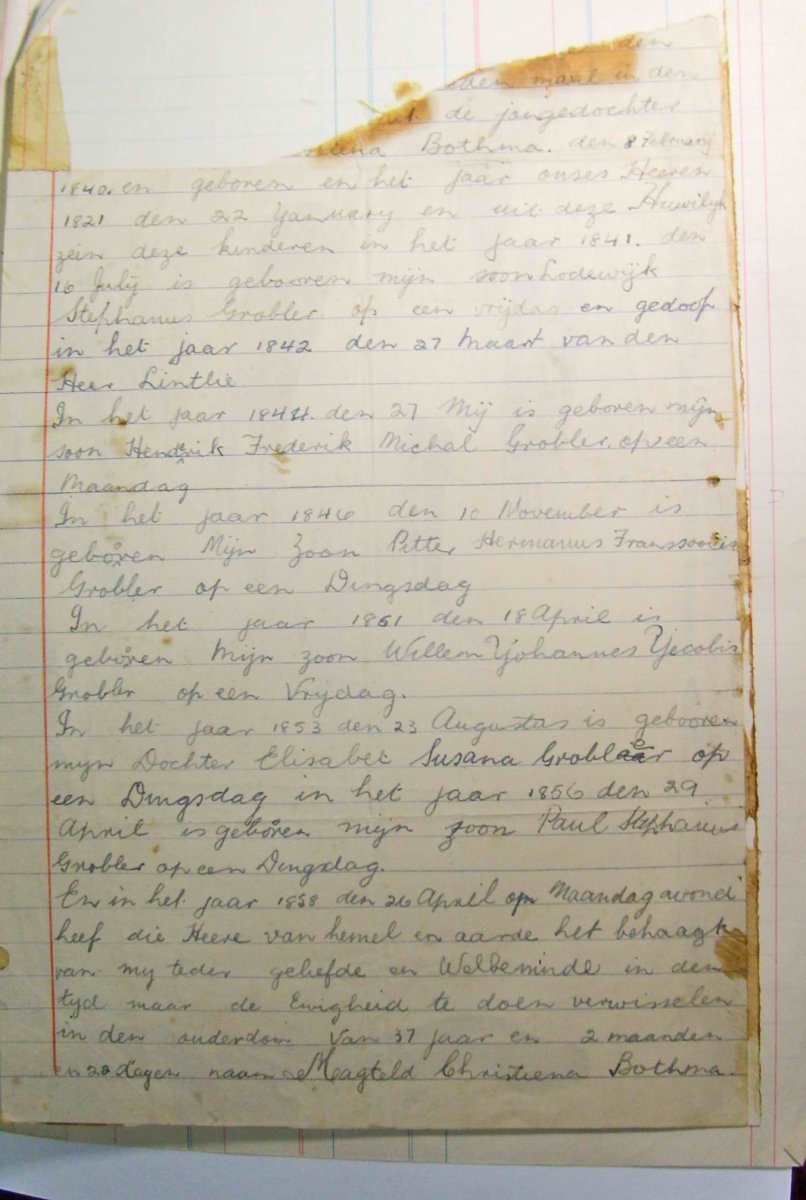 den
den maal in den
de jongedochter
Bothma. den 8 February
1840 en geboren en het jaar onses Heeren
1821 den 22 Yanuary en uit deze Huwilyk
zein deze kinderen in het jaar 1841. den
16 Julij is gebooren mijn soon Lodewijk
Stephanus Grobler op een vrijdag en gedoop
in het jaar 1842 den 27 Maart van den
Heer Lintlie
In het jaar 1844. den 27 Mij is geboren mijn
soon Hendrik Frederik Michal Grobler. op een
Maandag
In het jaar 1846 den 10 November is
geboren Mijn Zoon Pitter Hermanus Fransoois
Grobler op een Dingsdag
In het jaar 1851 den 18 April is
geboren Mijn zoon Willem Yohannes Yecobis
Grobler op een Vrijdag.
In het jaar 1853 den 23 Augustas is gebooren
myn Dochter Elisabet Susana Grobler op
een Dingsdag in het jaar 1856 den 29
April is geboren mijn zoon Paul Stephanus
Grobler op een Dingsdag.
En in het jaar 1858 den 26 April op Maandag avond
heef die Heere van hemel en aarde het behaagt
van my teder geliefde en Welbeminde in den
tyd maar de Ewigheid te doen verwisselen
in den ouderdom Van 37 jaar en 2 maanden
en dagen naam Magteld Christiena Bothma.